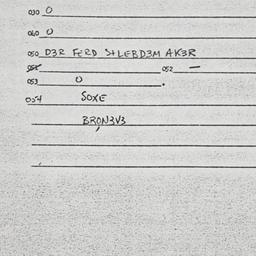 030 0
040 0
050 D3R FERD S+LEBD3M AK3R
052 —
053 0
054 SOXE
BRON3V3